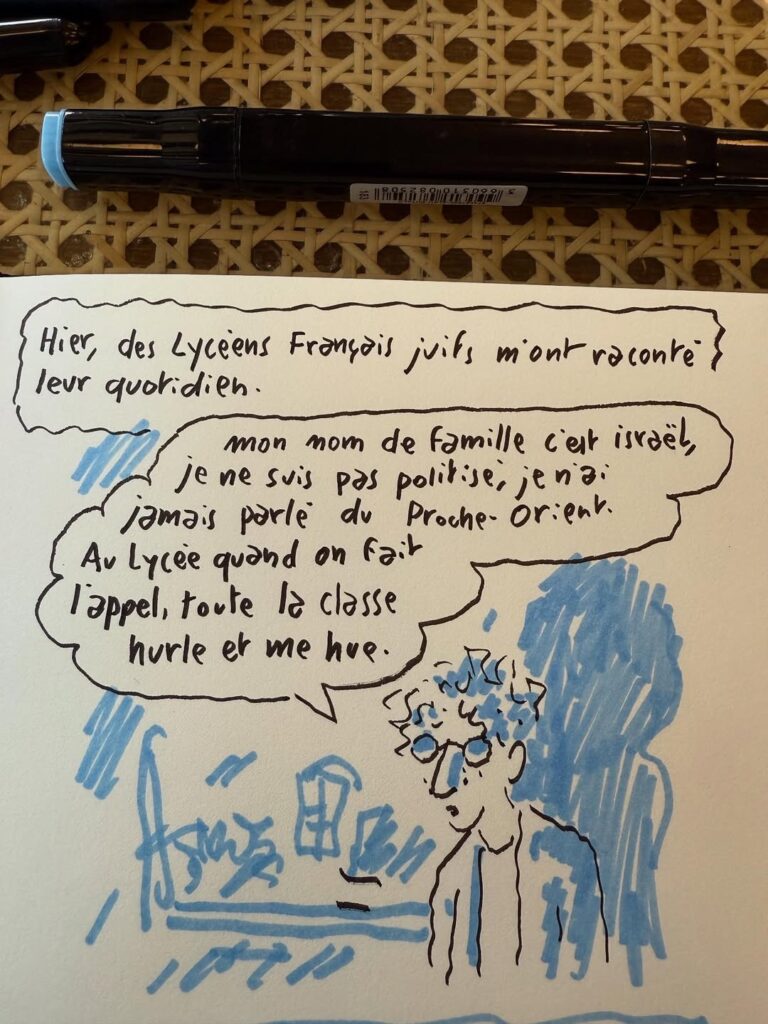 3660310082308
Hier, des Lycéens Français juifs m'ont raconté
leur quotidien.
mon nom de famille c'est israël,
je ne suis pas politisé, je n'ai
jamais parlé du Proche-Orient.
Au Lycée quand on fait
l'appel, toute la classe
hurle et me hue.